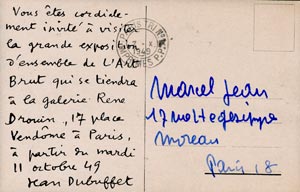 Vous êtes cordiale-
ment invité à visiter
la grande exposition
d'ensemble de L'Art
Brut qui se tiendra
à la galerie René
Drouin, 17 place
Vendôme à Paris,
à partir du mardi
11 octobre 49
Jean Dubuffet
1949
Marcel Jean
17 rue Hégésippe
Moreau
Paris 18